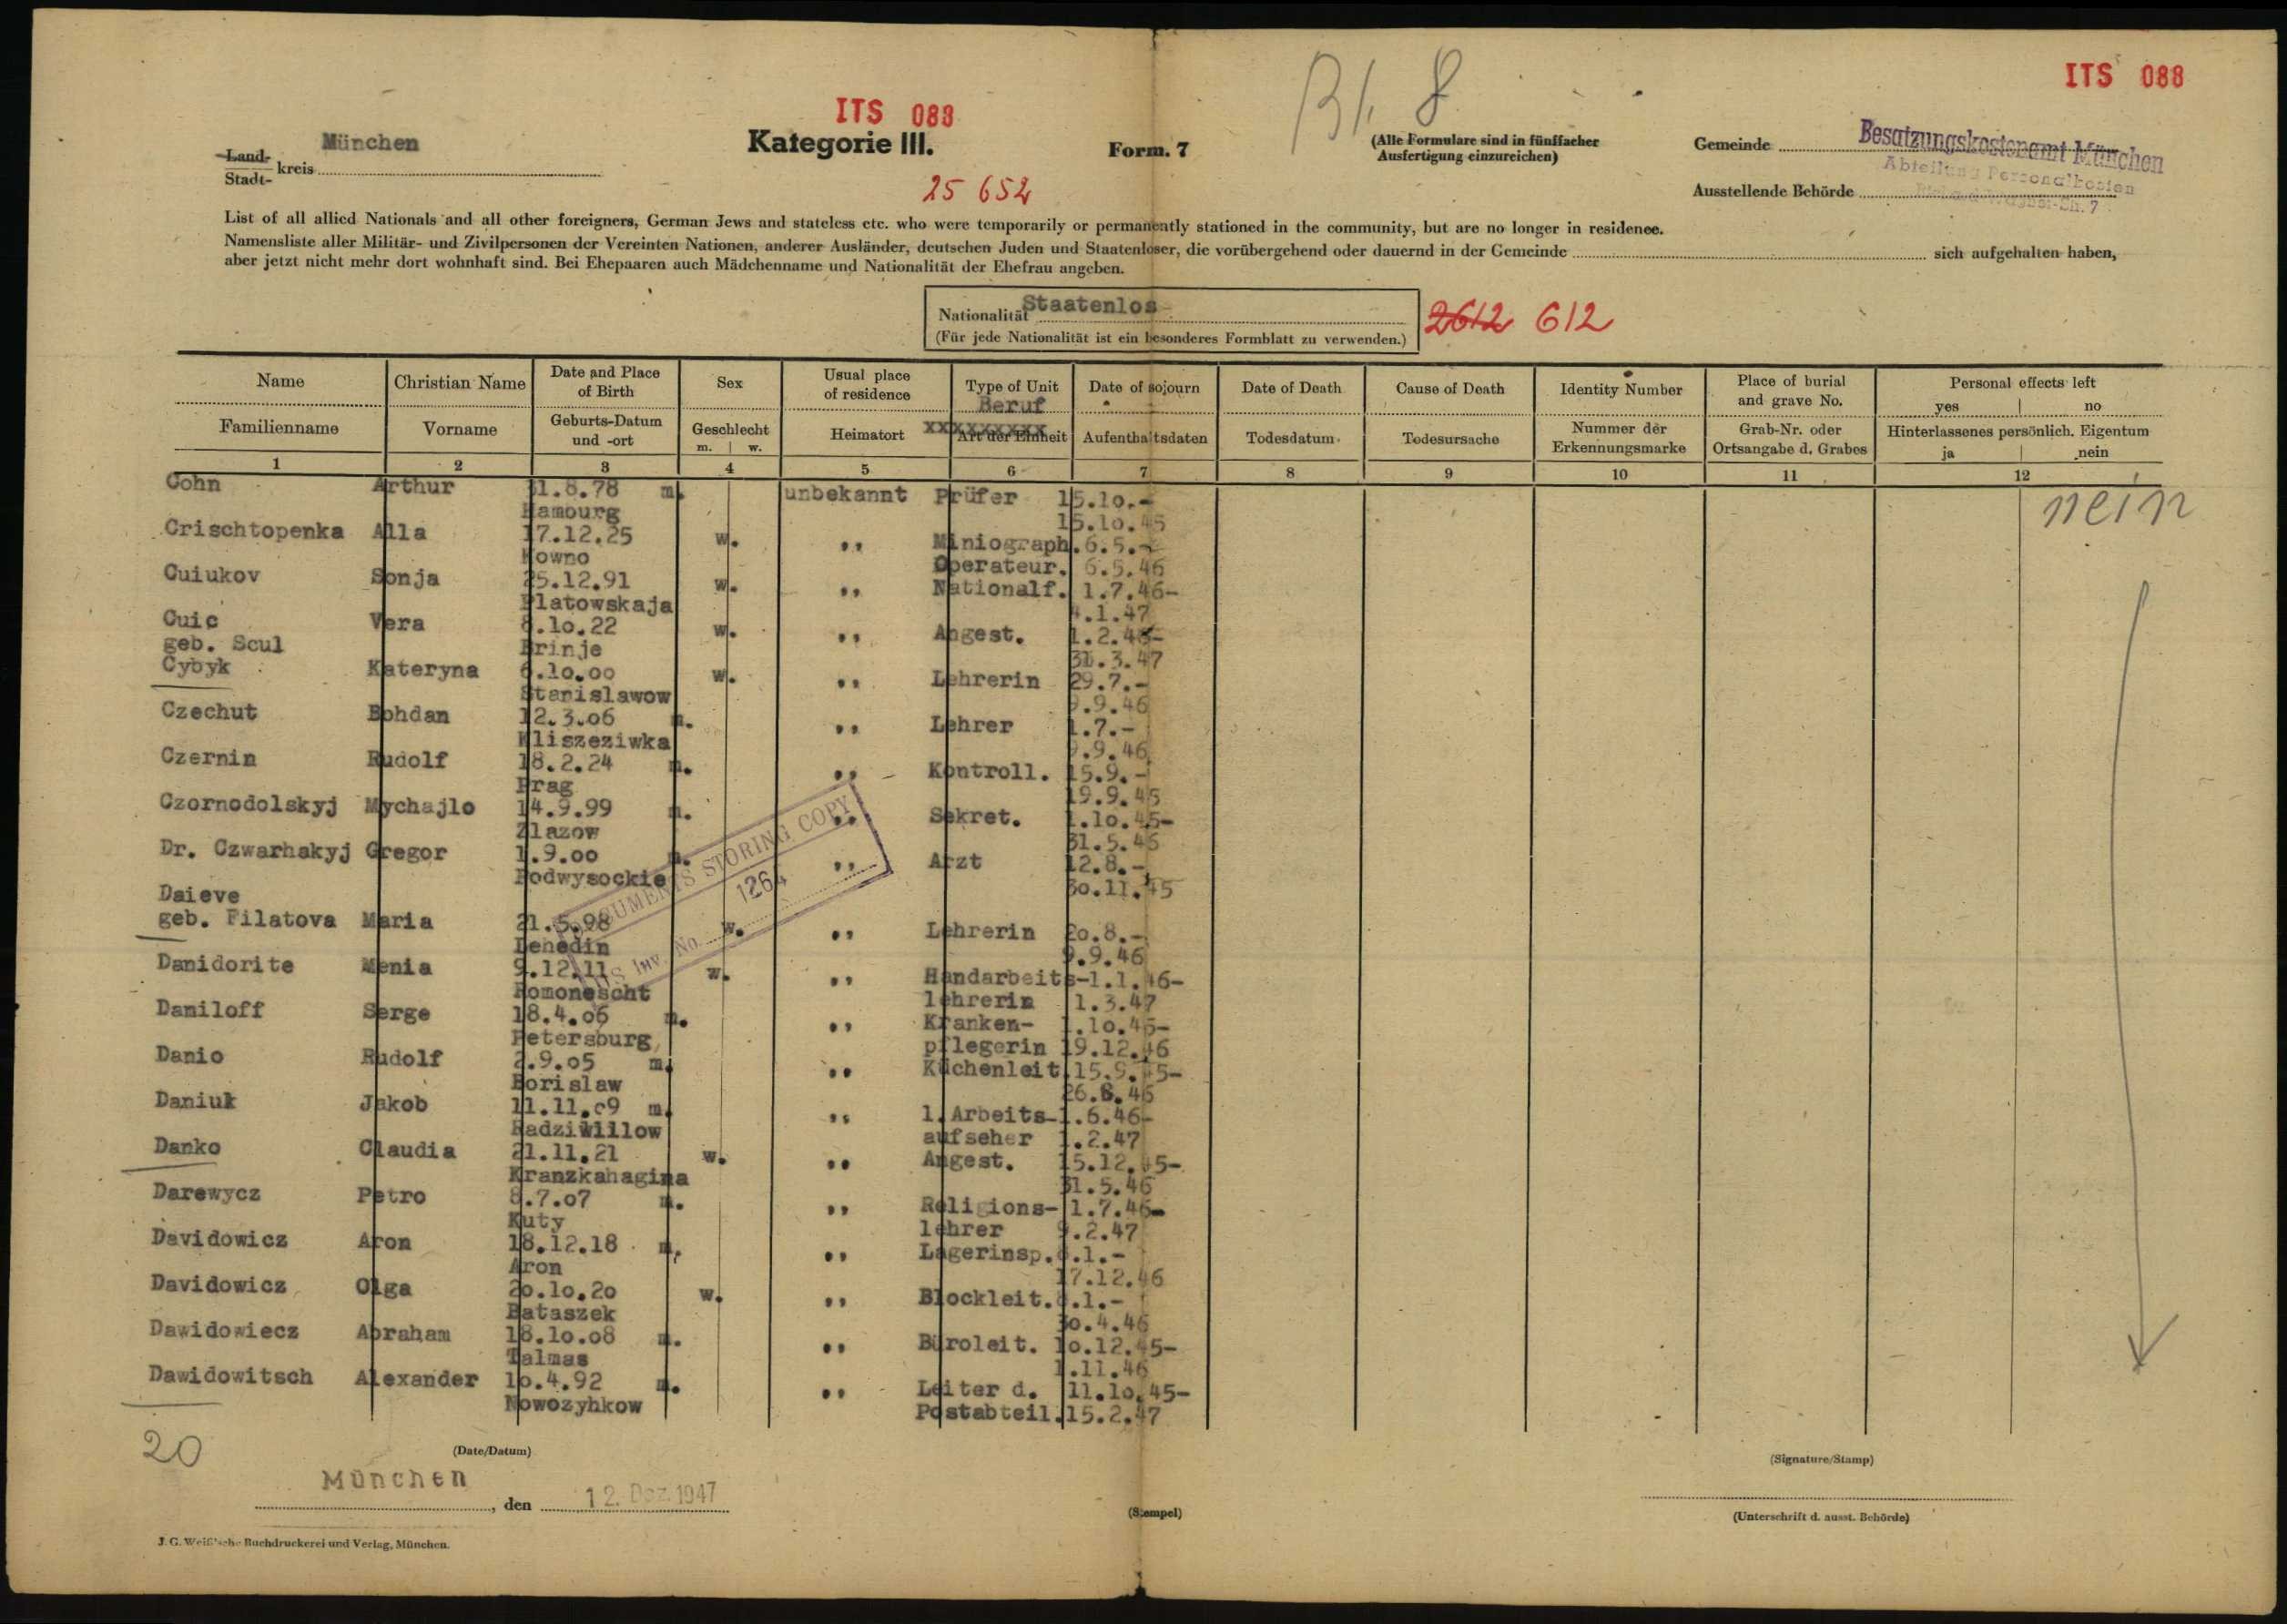 ITS 088
Bl. 8
ITS 088
München
Land-
Stadt- kreis
Kategorie III.
Form. 7
(Alle Formulare sind in fünffacher
Ausfertigung einzureichen)
Gemeinde
Besatzungskostenamt München
Abteilung Personalkosten
Ausstellende Behörde
25 652
List of all allied Nationals and all other foreigners, German Jews and stateless etc. who were temporarily or permanently stationed in the community, but are no longer in residence.
Namensliste aller Militär- und Zivilpersonen der Vereinten Nationen, anderer Ausländer, deutschen Juden und Staatenloser, die vorübergehend oder dauernd in der Gemeinde sich aufgehalten haben,
aber jetzt nicht mehr dort wohnhaft sind. Bei Ehepaaren auch Mädchenname und Nationalität der Ehefrau angeben.
Nationalität Staatenlos
(Für jede Nationalität ist ein besonderes Formblatt zu verwenden.)
2612 612
Name Christian Name Date and Place of Birth Sex Usual place of residence Type of Unit Date of sojourn Date of Death Cause of Death Identity Number Place of burial and grave No. Personal effects left
yes no
Beruf
Familienname Vorname Geburts-Datum und -ort Geschlecht m. w. Heimatort xxxxxxxxx Art der Einheit Aufenthaltsdaten Todesdatum Todesursache Nummer der Erkennungsmarke Grab-Nr. oder Ortsangabe d. Grabes Hinterlassenes persönlich. Eigentum
ja nein
1 2 3 4 5 6 7 8 9 10 11 12
Cohn Arthur 31.8.78 m. unbekannt Prüfer 15.10.- nein
Hamburg 15.10.45
Crischtopenka Alla 17.12.25 w. ,, Miniograph. 6.5.-
Kowno Operateur. 6.5.46
Cuiukov Sonja 25.12.91 w. ,, Nationalf. 1.7.46-
Platowskaja 4.1.47
Cuic Vera 8.10.22 w. ,, Angest. 1.2.46-
geb. Scul Brinje 31.3.47
Cybyk Kateryna 6.10.00 w. ,, Lehrerin 29.7.-
Stanislawow 9.9.46
Czechut Bohdan 12.3.06 m. ,, Lehrer 1.7.-
Kliszeziwka 9.9.46
Czernin Rudolf 18.2.24 m. ,, Kontroll. 15.9.-
Prag 19.9.45
Czornodolskyj Mychajlo 14.9.99 m. ,, Sekret. 1.10.45-
Zlazow 31.5.46
Dr. Czwarhakyj Gregor 1.9.00 m. ,, Arzt 12.8.-
Podwysockie 30.11.45
DOCUMENTS STORING COPY
ITS Inv. No. 1264
Daieve
geb. Filatova Maria 21.5.98 w. ,, Lehrerin 20.8.-
Lehedin 9.9.46
Danidorite Menia 9.12.11 w. ,, Handarbeits- 1.1.46-
Romonescht lehrerin 1.3.47
Daniloff Serge 18.4.06 m. ,, Kranken- 1.10.45-
Petersburg pflegerin 19.12.46
Danio Rudolf 2.9.05 m. ,, Küchenleit. 15.9.45-
Borislaw 26.8.46
Daniuk Jakob 11.11.09 m. ,, 1. Arbeits- 1.6.46-
Radziwillow aufseher 1.2.47
Danko Claudia 21.11.21 w. ,, Angest. 15.12.45-
Kranzkahagina 31.5.46
Darewycz Petro 8.7.07 m. ,, Religions- 1.7.46-
Kuty lehrer 9.2.47
Davidowicz Aron 18.12.18 m. ,, Lagerinsp. 8.1.-
Aron 17.12.46
Davidowicz Olga 20.10.20 w. ,, Blockleit. 8.1.-
Bataszek 30.4.46
Dawidowiecz Abraham 18.10.08 m. ,, Büroleit. 10.12.45-
Talmas 1.11.46
Dawidowitsch Alexander 10.4.92 m. ,, Leiter d. 11.10.45-
Nowozyhkow Postabteil. 15.2.47
20
(Date/Datum)
(Signature/Stamp)
München, den 12. Dez. 1947
(Stempel)
(Unterschrift d. ausst. Behörde)
J. G. Weiß'sche Buchdruckerei und Verlag, München.